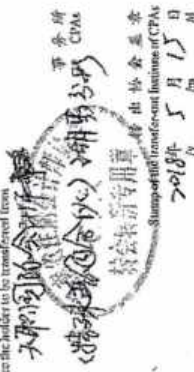 the holder to be transferred from
天职国际会计师
事务所
CPAs
(特殊普通合伙)湖南分所
转出协会盖章
Stamp of the transfer-out Institute of CPAs
2018年5月15日
/y /m /d